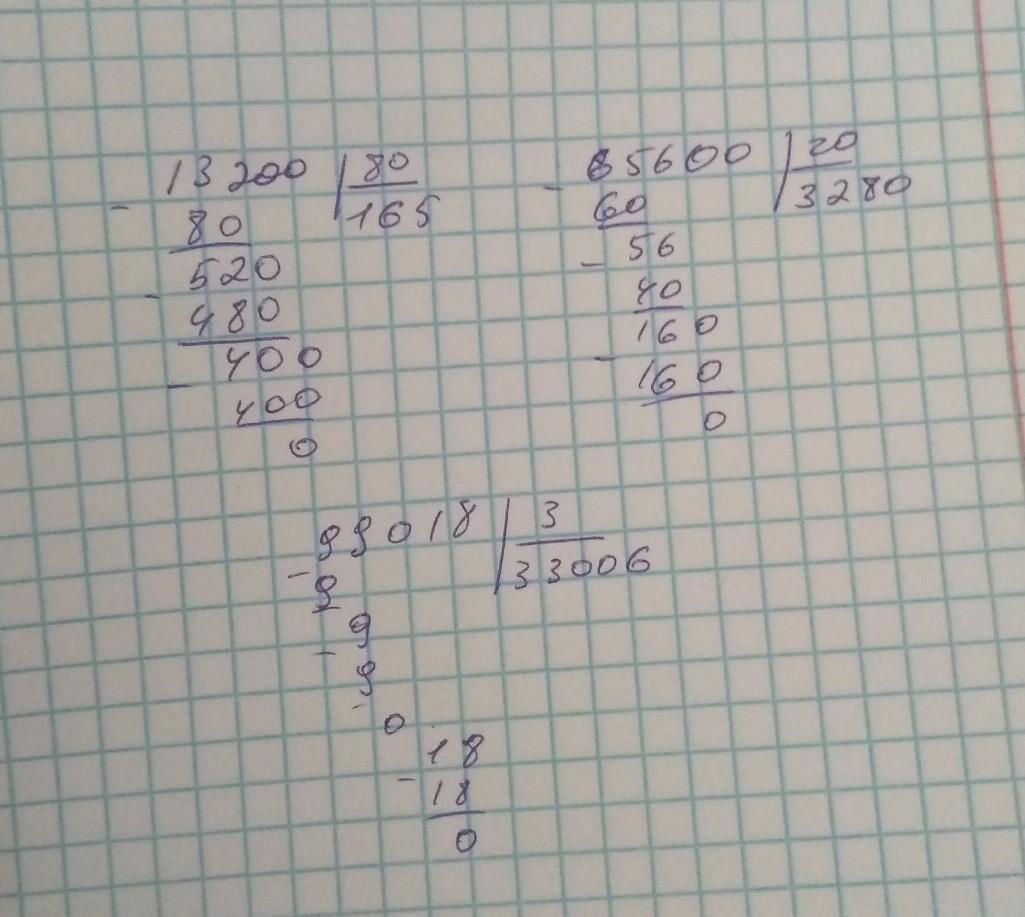 13200 80
- 80 165
520
- 480
400
- 400
0
65600 20
- 60 3280
56
- 40
160
- 160
0
99018 3
- 9 33006
9
- 9
0
18
- 18
0